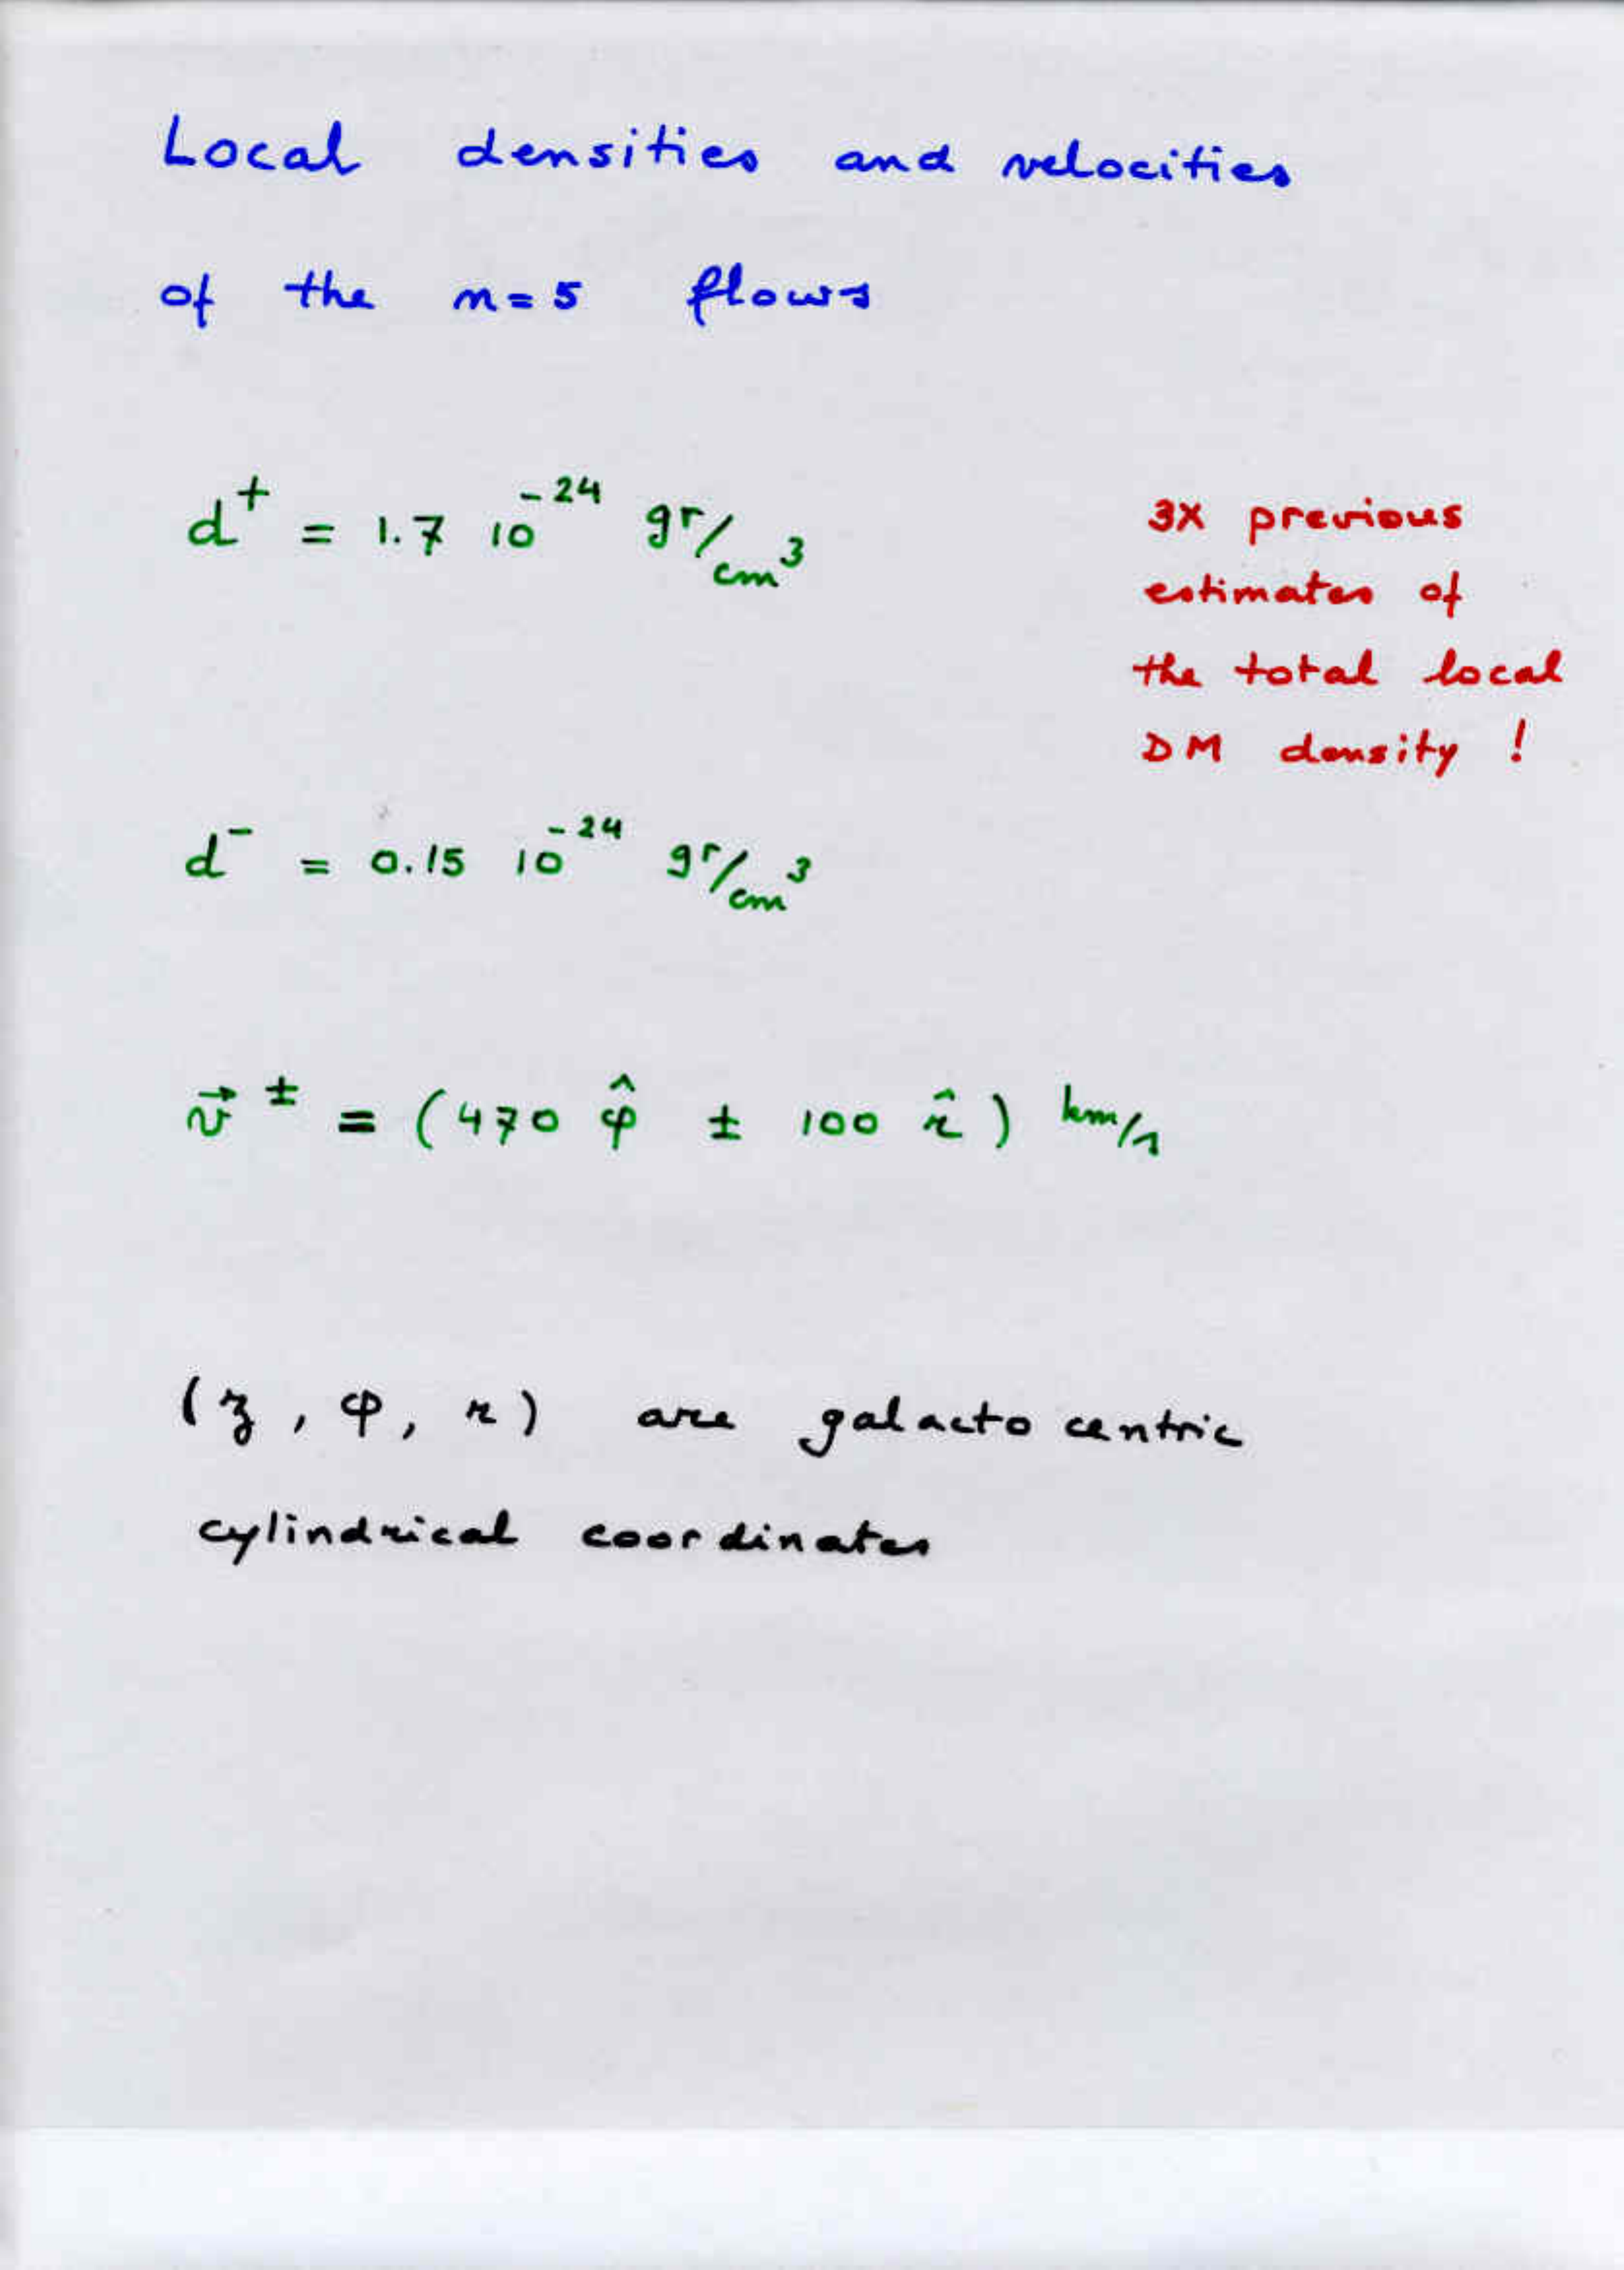 Local densities and velocities
of the n=5 flows
d⁺ = 1.7 10⁻²⁴ gr/cm³
3X previous
estimates of
the total local
DM density !
d⁻ = 0.15 10⁻²⁴ gr/cm³
v⃗ ± = (470 φ̂ ± 100 r̂) km/s
(z, φ, r) are galacto centric
cylindrical coordinates